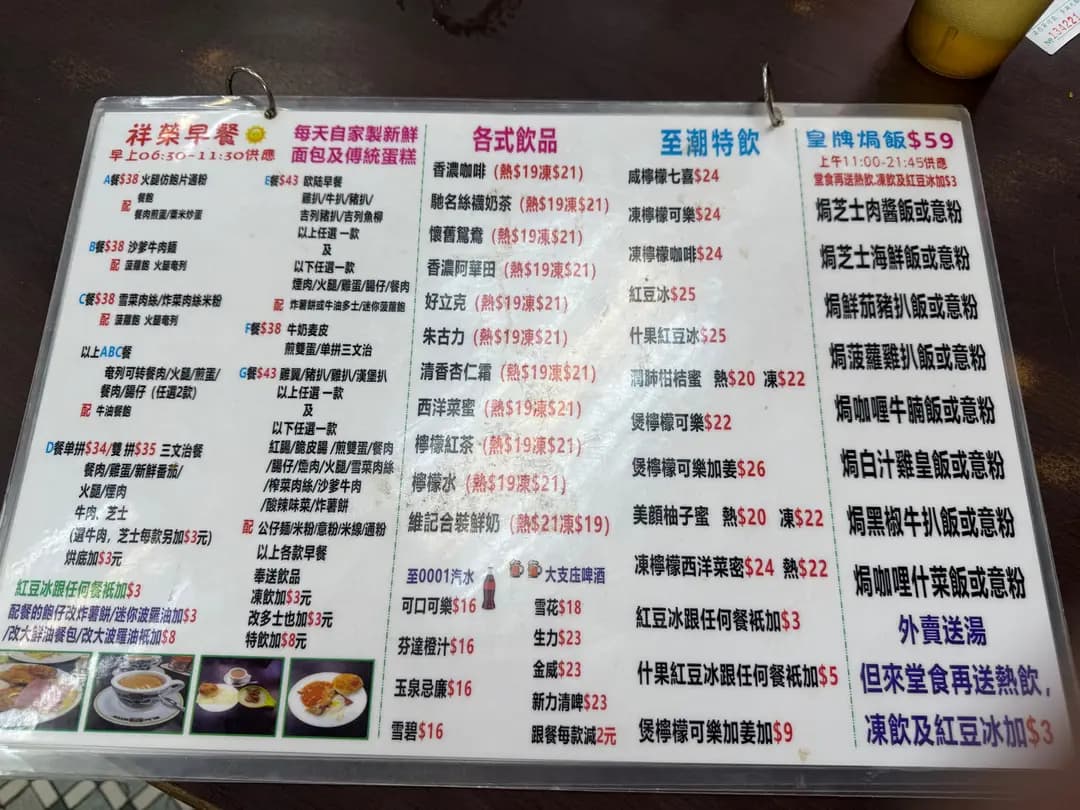 祥榮早餐
早上06:30-11:30供應
A餐$38 火腿仿鮑片通粉
餐飽
配
餐肉煎蛋/粟米炒蛋
B餐$38 沙爹牛肉麵
配 菠蘿飽 火腿奄列
C餐$38 雪菜肉絲/炸菜肉絲米粉
配 菠蘿飽 火腿奄列
以上ABC餐
奄列可转餐肉/火腿/煎蛋/
餐肉/腸仔 (任選2款)
配 牛油餐飽
D餐单拼$34/雙拼$35 三文治餐
餐肉/雞蛋/新鮮番茄/
火腿/煙肉
牛肉、芝士
(選牛肉，芝士每款另加$3元)
烘底加$3元
紅豆冰跟任何餐衹加$3
配餐的飽仔改炸薯餅/迷你波羅油加$3
/改大鮮油餐包/改大波羅油衹加$8
每天自家製新鮮
面包及傳統蛋糕
E餐$43 歐陆早餐
雞扒/牛扒/豬扒/
吉列豬扒/吉列魚柳
以上任選 一款
及
以下任選一款
煙肉/火腿/雞蛋/腸仔/餐肉
配 炸薯餅或牛油多士/迷你菠蘿飽
F餐$38 牛奶麦皮
煎雙蛋/单拼三文治
G餐$43 雞翼/豬扒/雞扒/漢堡扒
以上任選 一款
及
以下任選一款
紅腸/脆皮腸/煎雙蛋/餐肉
/腸仔/煙肉/火腿/雪菜肉絲
/榨菜肉絲/沙爹牛肉
/酸辣味菜/炸薯餅
配 公仔麵/米粉/意粉/米線/通粉
以上各款早餐
奉送飲品
凍飲加$3元
改多士也加$3元
特飲加$8元
各式飲品
香濃咖啡 (熱$19凍$21)
馳名絲襪奶茶 (熱$19凍$21)
懷舊鴛鴦 (熱$19凍$21)
香濃阿華田 (熱$19凍$21)
好立克 (熱$19凍$21)
朱古力 (熱$19凍$21)
清香杏仁霜 (熱$19凍$21)
西洋菜蜜 (熱$19凍$21)
檸檬紅茶 (熱$19凍$21)
檸檬水 (熱$19凍$21)
維記合裝鮮奶 (熱$21凍$19)
至0001汽水
可口可樂$16
芬达橙汁$16
玉泉忌廉$16
雪碧$16
大支庄啤酒
雪花$18
生力$23
金威$23
新力清啤$23
跟餐每款減2元
至潮特飲
咸檸檬七喜$24
凍檸檬可樂$24
凍檸檬咖啡$24
紅豆冰$25
什果紅豆冰$25
潤肺柑桔蜜 熱$20 凍$22
煲檸檬可樂$22
煲檸檬可樂加姜$26
美顏柚子蜜 熱$20 凍$22
凍檸檬西洋菜密$24 熱$22
紅豆冰跟任何餐衹加$3
什果紅豆冰跟任何餐衹加$5
煲檸檬可樂加姜加$9
皇牌焗飯$59
上午11:00-21:45供應
堂食再送熱飲,凍飲及紅豆冰加$3
焗芝士肉醬飯或意粉
焗芝士海鮮飯或意粉
焗鮮茄豬扒飯或意粉
焗菠蘿雞扒飯或意粉
焗咖喱牛腩飯或意粉
焗白汁雞皇飯或意粉
焗黑椒牛扒飯或意粉
焗咖哩什菜飯或意粉
外賣送湯
但來堂食再送熱飲，
凍飲及紅豆冰加$3
№134221